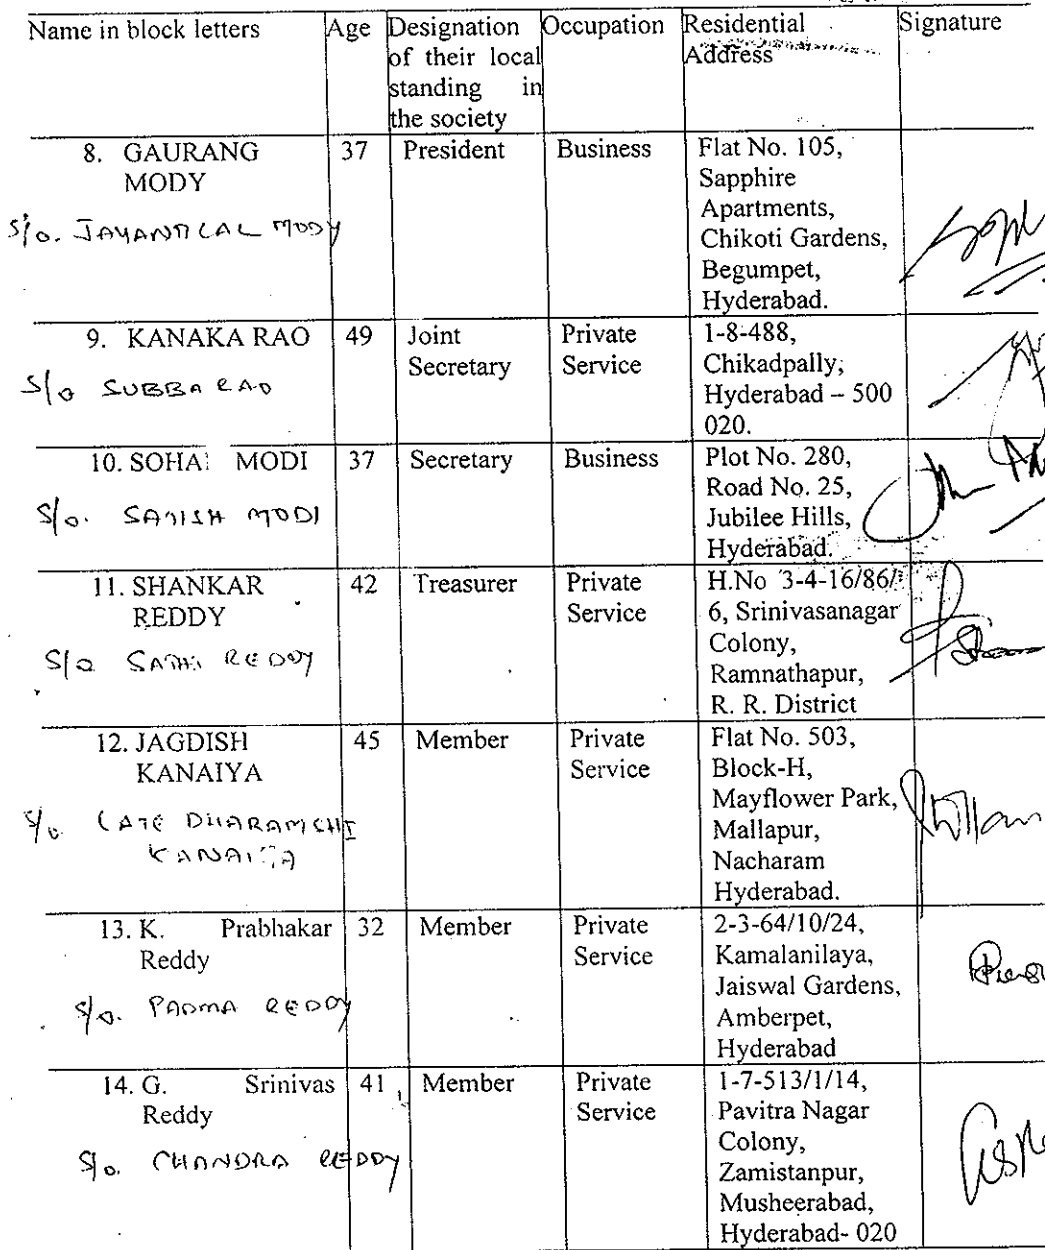 Name in block letters Age Designation of their local standing in the society Occupation Residential Address Signature
8. GAURANG MODY 37 President Business Flat No. 105, Sapphire Apartments, Chikoti Gardens, Begumpet, Hyderabad.
S/o. JAYANTILAL MODY
9. KANAKA RAO 49 Joint Secretary Private Service 1-8-488, Chikadpally, Hyderabad – 500 020.
S/o SUBBA RAO
10. SOHA MODI 37 Secretary Business Plot No. 280, Road No. 25, Jubilee Hills, Hyderabad.
S/o. SATISH MODI
11. SHANKAR REDDY 42 Treasurer Private Service H.No 3-4-16/86/ 6, Srinivasanagar Colony, Ramnathapur, R. R. District
S/o SATHI REDDY
12. JAGDISH KANAIYA 45 Member Private Service Flat No. 503, Block-H, Mayflower Park, Mallapur, Nacharam Hyderabad.
S/o. LATE DHARAMSHI KANAIYA
13. K. Prabhakar Reddy 32 Member Private Service 2-3-64/10/24, Kamalanilaya, Jaiswal Gardens, Amberpet, Hyderabad
S/o. PADMA REDDY
14. G. Srinivas Reddy 41 Member Private Service 1-7-513/1/14, Pavitra Nagar Colony, Zamistanpur, Musheerabad, Hyderabad- 020
S/o. CHANDRA REDDY